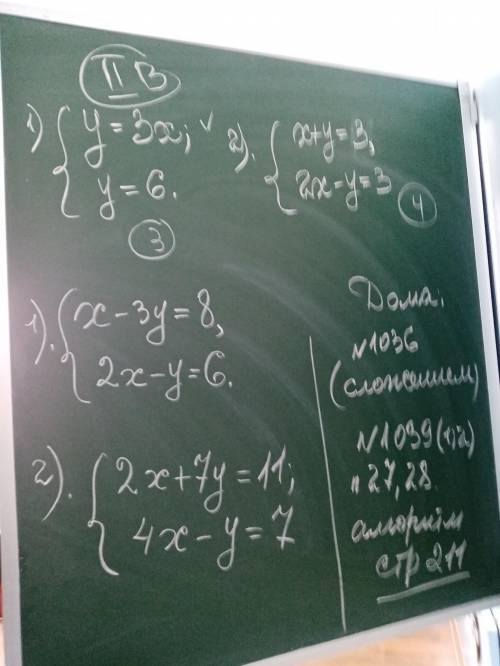 II В
1) { y = 3x;
y = 6.
③
2). { x+y = 3,
2x-y = 3
④
1). { x - 3y = 8,
2x - y = 6.
2). { 2x + 7y = 11;
4x - y = 7
Дома:
№1036
(сложением)
п 27, 28.
алгоритм
стр 211